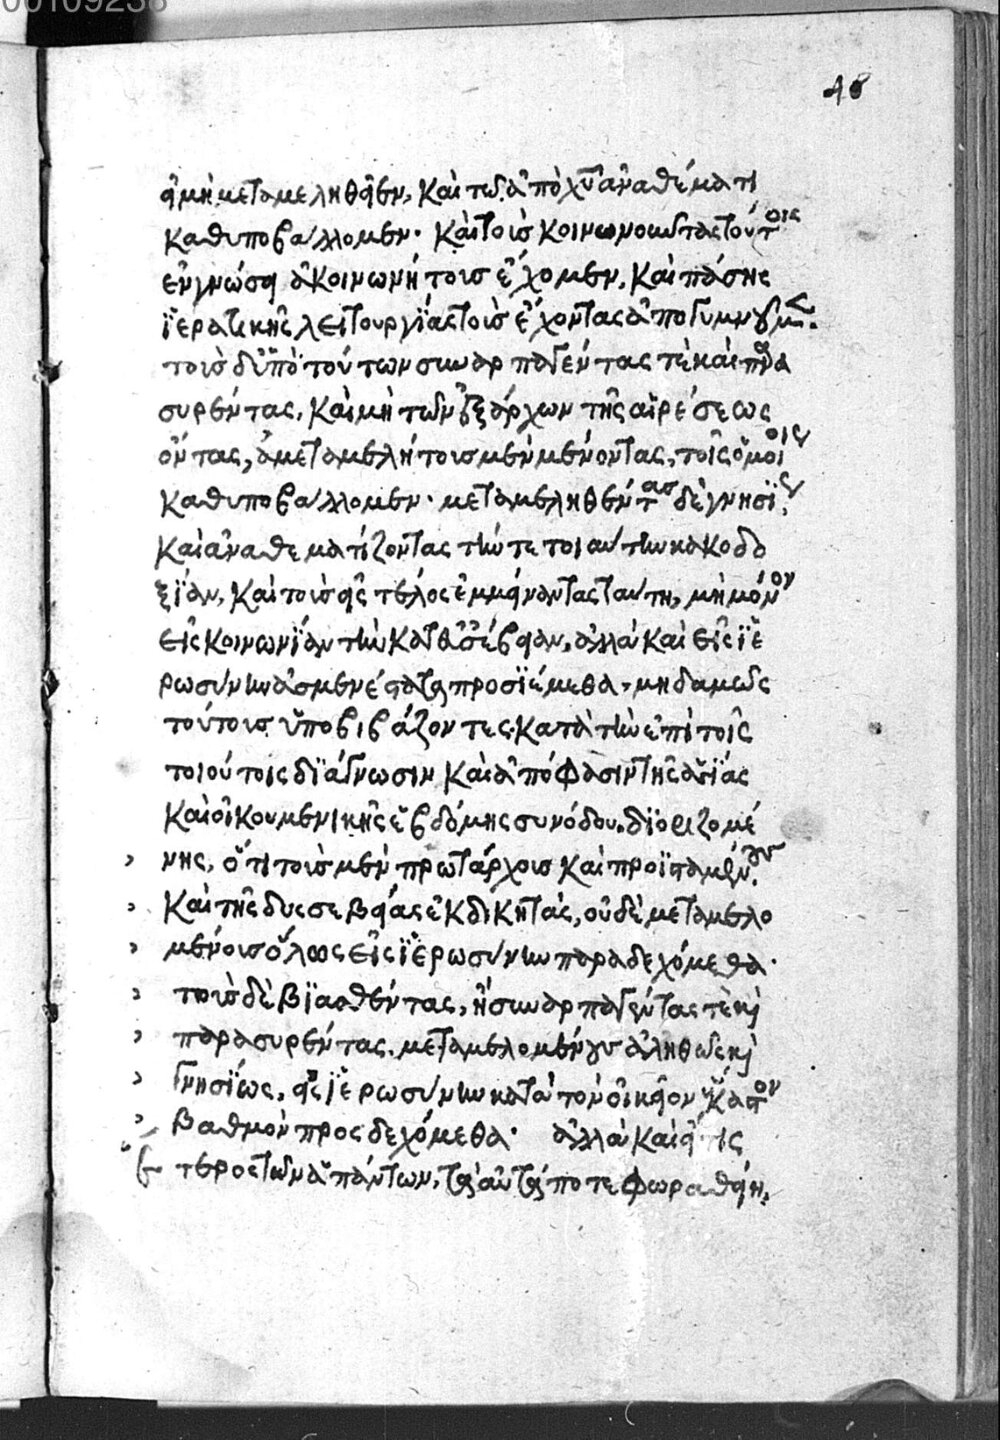 00109238
48
εἰ μὴ μεταμεληθεῖεν, καὶ τῶ ἀπὸ χυ ἀναθέματι
καθυποβάλλομεν· καὶ τοὺς κοινωνοῦντας τούτοις
ἐν γνώσει ἀκοινωνήτους ἔχομεν, καὶ πάσης
ἱερατικῆς λειτουργίας τοὺς ἔχοντας ἀπογυμνοῦμεν.
τοὺς δ' ὑπὸ τούτων συναρπαγέντας τὲ καὶ παρα
συρέντας, καὶ μὴ τῶν ἐξάρχων τῆς αἱρέσεως
ὄντας, ἀμεταμελήτους μὲν μένοντας, τοῖς ὁμοίοις
καθυποβάλλομεν· μεταμεληθέντας δὲ γνησίως,
καὶ ἀναθεματίζοντας τήν τε τοιαύτην κακοδο
ξίαν, καὶ τοὺς εἰς τέλος ἐμμείναντας ταύτη, μὴ μόνον
εἰς κοινωνίαν τὴν κατ' εὐσέβειαν, ἀλλὰ καὶ εἰς ἱε
ρωσύνην ἀσμενέστατα προσιέμεθα, μηδαμῶς
τούτους ὑποβιβάζοντες, κατὰ τὴν ἐπὶ τοῖς
τοιούτοις διάγνωσιν καὶ ἀπόφασιν τῆς ἁγίας
καὶ οἰκουμενικῆς ἑβδόμης συνόδου, διοριζομέ
νης, ὅτι τοὺς μὲν πρωτάρχους καὶ προϊσταμένους,
καὶ τῆς δυσσεβείας ἐκδικητάς, οὐδὲ μεταμελο
μένους ὅλως εἰς ἱερωσύνην παραδεχόμεθα·
τοὺς δὲ βιασθέντας, ἢ συναρπαγέντας τὲ καὶ
παρασυρέντας, μεταμελομένους ἀληθῶς καὶ
γνησίως, εἰς ἱερωσύνην κατὰ τὸν οἰκεῖον ἕκαστον
βαθμὸν προσδεχόμεθα· ἀλλὰ καὶ εἴ τις
ἕτερος τῶν ἁπάντων, τὰ αὐτά ποτε φωραθείη,